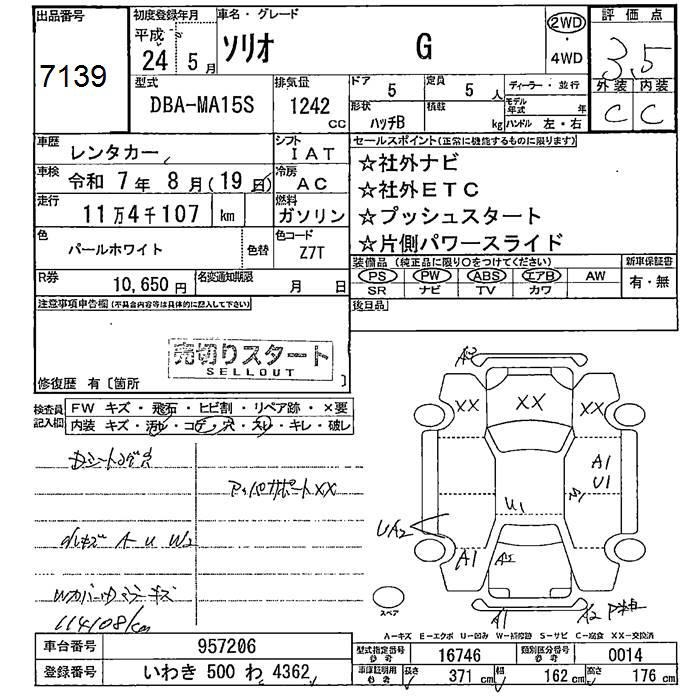 出品番号 初度登録年月 車名・グレード 評価点
7139 平成 24年 5月 ソリオ G 2WD ・ 4WD 3.5
型式 排気量 ドア 5 定員 5人 ディーラー・並行 外装 内装
DBA-MA15S 1242cc 形状 ハッチB 積載 kg モデル年式 年 C C
ハンドル 左・右
車歴 レンタカー シフト IAT セールスポイント(正常に機能するものに限ります)
車検 令和 7年 8月(19日) 冷房 AC ☆社外ナビ
☆社外ETC
走行 11万4千107 km 燃料 ガソリン ☆プッシュスタート
色 パールホワイト 色替 色コード Z7T ☆片側パワースライド
装備品(純正品に限り○をつけてください) 新車保証書
R券 10,650円 名変通知期限 月 日 PS PW ABS エアB AW 有・無
SR ナビ TV カワ
注意事項申告欄(不具合内容等は具体的に記入して下さい) 後日品
売切りスタート
SELLOUT
修復歴 有〔箇所 〕
検査員記入欄 FW キズ・飛石・ヒビ割・リペア跡・×要
内装 キズ・汚れ・コゲ・穴・スレ・キレ・破レ
A2
XX XX XX
A1
U1
U1
UA2
A1
A1 A2
アッパサポートXX
A U W2
114108km
スペア
A-キズ E-エクボ U-凹み W-補修跡 S-サビ C-腐食 XX-交換済
車台番号 957206 型式指定番号 参考 16746 類別区分番号 参考 0014
登録番号 いわき 500 わ 4362 車庫証明用 参考 長さ 371cm 幅 162cm 高さ 176cm